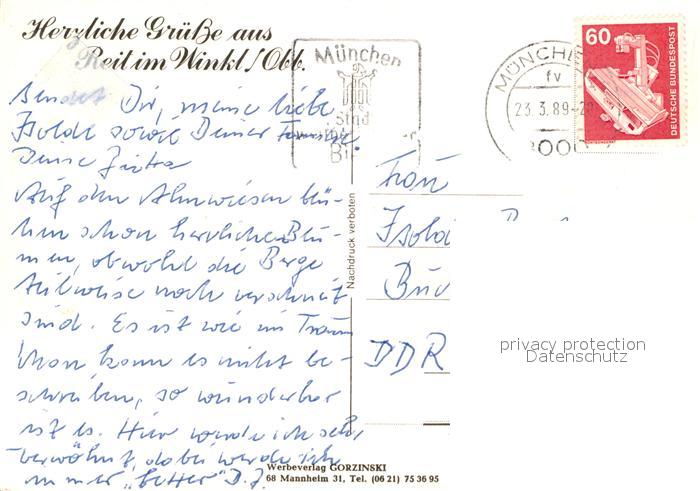 Herzliche Grüße aus
Reit im Winkl/Obb.
sendet Dir, meine liebe
Isolde sowie Deiner Familie
Deine Jutta
Auf den Almwiesen blü-
hen schon herrliche Blu-
men, obwohl die Berge
teilweise noch verschneit
sind. Es ist wie im Traum
Man kann es nicht be-
schreiben, so wunderbar
ist es. Hier werde ich sehr
verwöhnt, dabei werde ich
immer "fetter" D. J.
München
Stadt
MÜNCHE
fv
23.3.89-2
8000
60
DEUTSCHE BUNDESPOST
Nachdruck verboten
Frau
Isolde
Buc
DDR
privacy protection
Datenschutz
Werbeverlag GORZINSKI
68 Mannheim 31, Tel. (06 21) 75 36 95